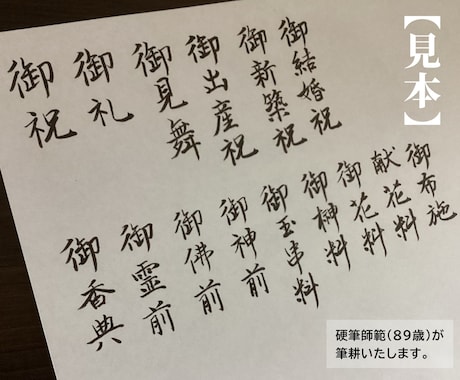 【見本】
御結婚祝
御新築祝
御出産祝
御見舞
御礼
御祝
御布施
献花料
御花料
御榊料
御玉串料
御神前
御佛前
御霊前
御香典
硬筆師範(89歳)が
筆耕いたします。